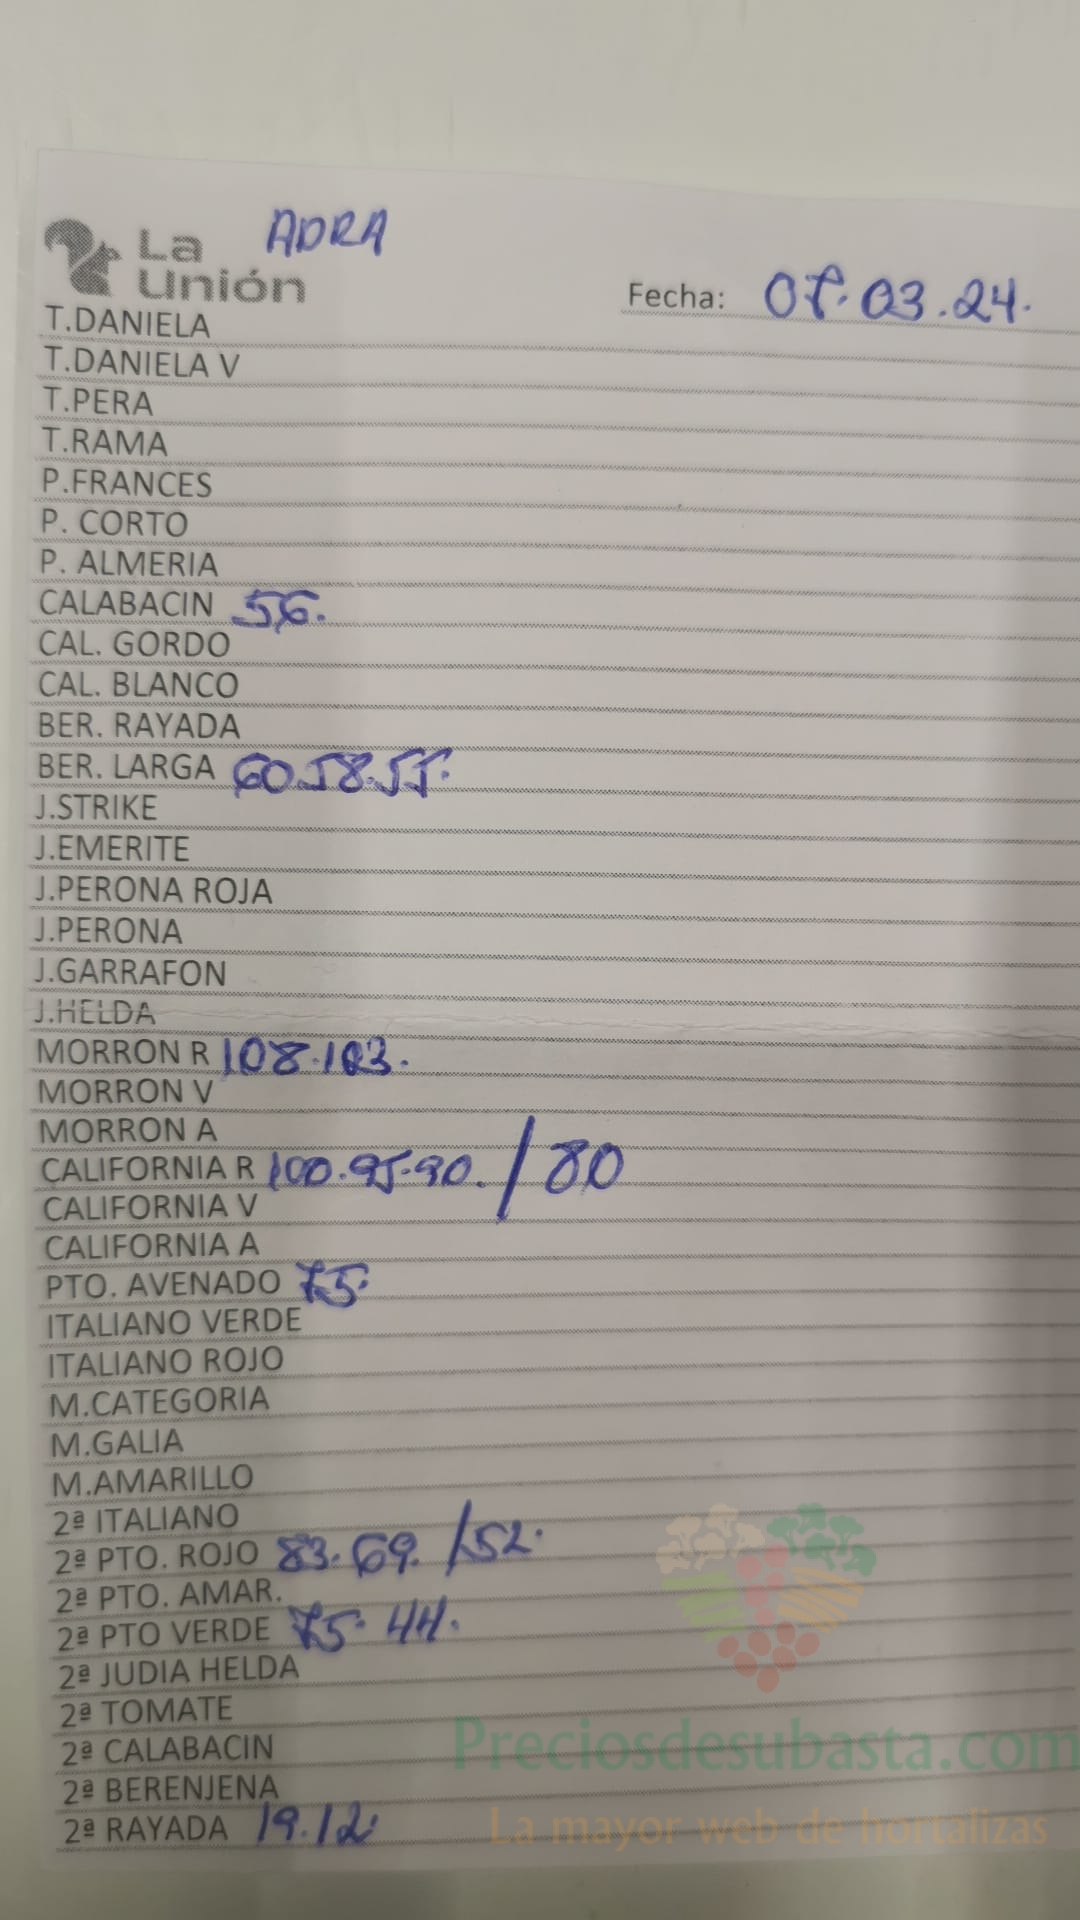 La Unión ADRA
Fecha: 07.03.24.
T.DANIELA
T.DANIELA V
T.PERA
T.RAMA
P.FRANCES
P. CORTO
P. ALMERIA
CALABACIN 56.
CAL. GORDO
CAL. BLANCO
BER. RAYADA
BER. LARGA 60.58.55.
J.STRIKE
J.EMERITE
J.PERONA ROJA
J.PERONA
J.GARRAFON
J.HELDA
MORRON R 108.103.
MORRON V
MORRON A
CALIFORNIA R 100.95.90. / 80
CALIFORNIA V
CALIFORNIA A
PTO. AVENADO 75.
ITALIANO VERDE
ITALIANO ROJO
M.CATEGORIA
M.GALIA
M.AMARILLO
2ª ITALIANO
2ª PTO. ROJO 83.69. /52.
2ª PTO. AMAR.
2ª PTO VERDE 75. 44.
2ª JUDIA HELDA
2ª TOMATE
2ª CALABACIN
2ª BERENJENA
2ª RAYADA 19.12.
Preciosdesubasta.com
La mayor web de hortalizas